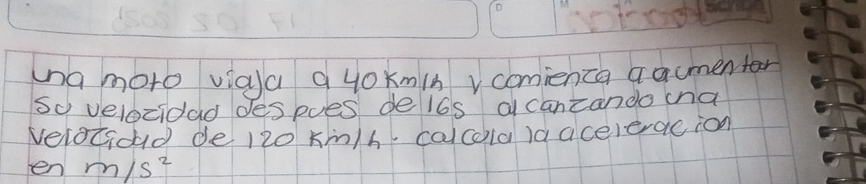 una moto viaja a 40 Km/h y comienza a aumentar
su velozidad despues de 16s alcanzando una
velocidad de 120 Km/h. calcula la aceleracion
en m/s²